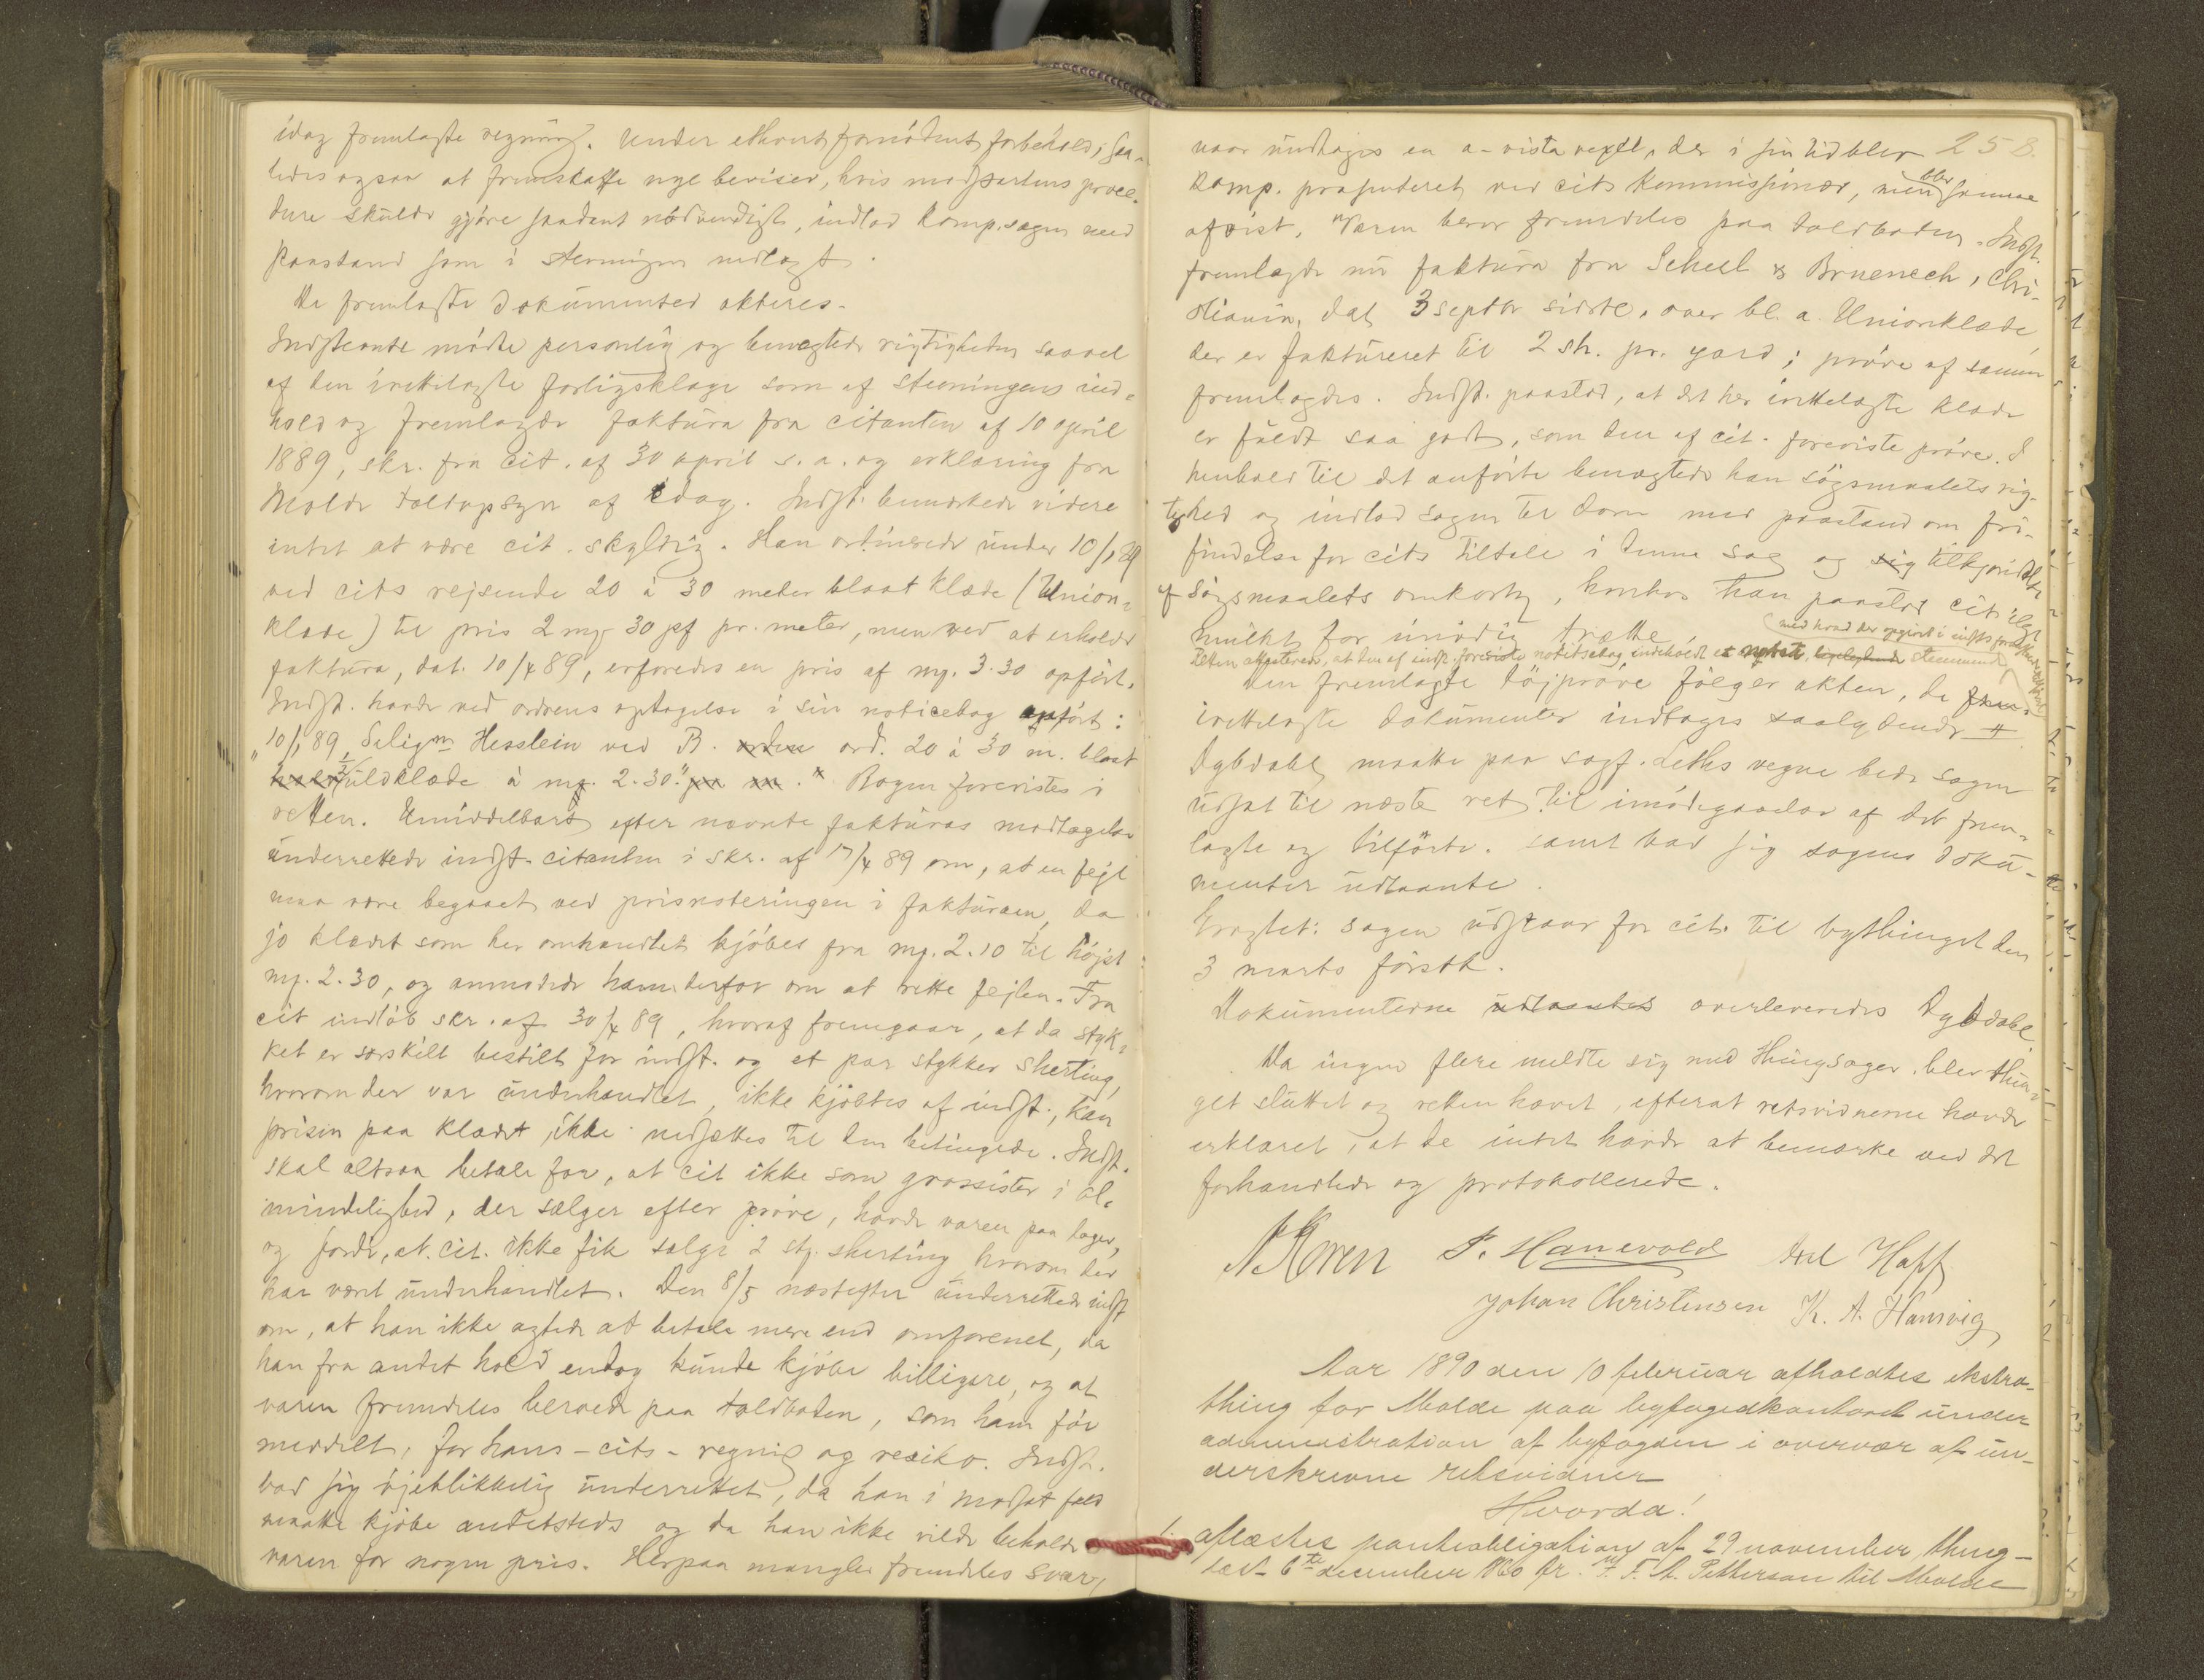 idag fremlagte regning. Under ethvert fornödent forbehold, saa-
ledes ogsaa at fremskaffe nye beviser, hvis modpartens proce-
dure skulde gjöre saadant nödvendigt, indlod komp. sagen med
paastand som i stevningen nedlagt.
De fremlagte dokumenter akteres.
Indstevnte mödte personlig og benegtede rigtigheden saavel
af den irettelagte forligsklage som af stevningens ind-
hold og fremlagde faktura fra citanten af 10 april
1889, skr. fra cit. af 30 april s. a. og erklæring fra
Molde toldopsyn af idag. Indst. bemerkede videre
intet at være cit. skyldig. Han ordinerede under 10/1 89
ved cits rejsende 20 à 30 meter blaat klæde (Union-
klæde) til pris 2 mg 30 pf pr. meter, men ved at erholde
faktura, dat. 10/4 89, erfaredes en pris af mg. 3.30 opfört.
Indst. havde ved ordrens optagelse i sin noticebog opfört:
"10/1 89, Seligm. Hesslein ved B. ord. 20 à 30 m. blaat
1/2 uldklæde à mg. 2.30." Bogen forevistes i
retten. Umiddelbart efter nævnte fakturas modtagelse
underrettede indst. citanten i skr. af 17/4 89 om, at en fejl
maa være begaaet ved prisnoteringen i fakturaen, da
jo klædet som her omhandlet kjöbes fra mg. 2.10 til höjst
mg. 2.30, og anmodede ham derfor om at rette fejlen. Fra
cit indlöb skr. af 30/4 89, hvoraf fremgaar, at da styk-
ket er særskilt bestilt for indst. og et par stykker sherting,
hvorom der var underhandlet, ikke kjöbtes af indst., kan
prisen paa klædet ikke nedsættes til den betingede. Indst.
skal altsaa betale for, at cit ikke som grossister i al-
mindelighed, der sælger efter pröve, havde varen paa lager,
og fordi, at cit. ikke fik sælge 2 stg. sherting hvorom der
har været underhandlet. Den 8/5 næstefter underrettede indst
om, at han ikke agtede at betale mere end omforenet, da
han fra andet hold endog kunde kjöbe billigere, og at
varen fremdeles beroede paa toldboden, som ham för
meddelt, for hans - cits - regning og resiko. Indst.
bad sig öjeblikkelig underrettet, da han i modsat fald
maatte kjöbe andetsteds og da han ikke vilde beholde
varen for nogen pris. Herpaa mangler fremdeles svar,
258.
naar undtages en a-vista vexel, der i sin tid blev
komp. præsenteret ved cits kommissionær, men blev samme
afvist. Varen beror fremdeles paa toldboden. Indst.
fremlagde nu faktura fra Scheel & Bruenech, Chri-
stiania, dat 3 septbr sidstl. over bl. a. Unionklæde
der er faktureret til 2 sh. pr. yard; pröve af samme
fremlagdes. Indst. paastod, at det her irettelagte klæde
er fuldt saa godt, som den af cit. foreviste pröve. I
henhold til det anförte benægtede han sögsmaalets rig-
tighed og indlod sagen til dom med paastand om fri-
findelse for cits tiltale i denne sag og tilkjendelse
af sögsmaalets omkostn, hvorhos han paastod cit. ilgt
mulkt for unödig trætte
Retten attesterede, at den af indst. foreviste notitsebog indeholdt et notat stemmende
med hvad der opgivet i indsts
Den fremlagte töjpröve fölger akten, de
irettelagte dokumenter indtages saalydende #
Dybdahl maatte paa sagf. Leths vegne bede sagen
udsat til næste ret til imödegaaelse af det frem-
lagte og tilförte. samt bad sig sagens doku-
menter udlaante.
Eragtet: sagen udstaar for cit. til bythinget den
3 marts förstk.
Dokumenterne udlaantes overleveredes Dybdahl.
Da ingen flere meldte sig med thingsager, blev thin-
get sluttet og retten hævet, efterat retsvidnerne havde
erklæret, at de intet havde at bemærke ved det
forhandlede og protokollerede.
N Koren P. Hanevold Axl Hoff
Johan Christensen K. A. Hamvig
Aar 1890 den 10 februar afholdtes ekstra-
thing for Molde paa byfogedkontoret under
administration af byfogden i overvær af un-
derskrevne retsvidner
Hvorda!
1. aflæstes panteobligation af 29 november, thing-
læst 6te december 1860 fr. F. A. Petterson til Molde